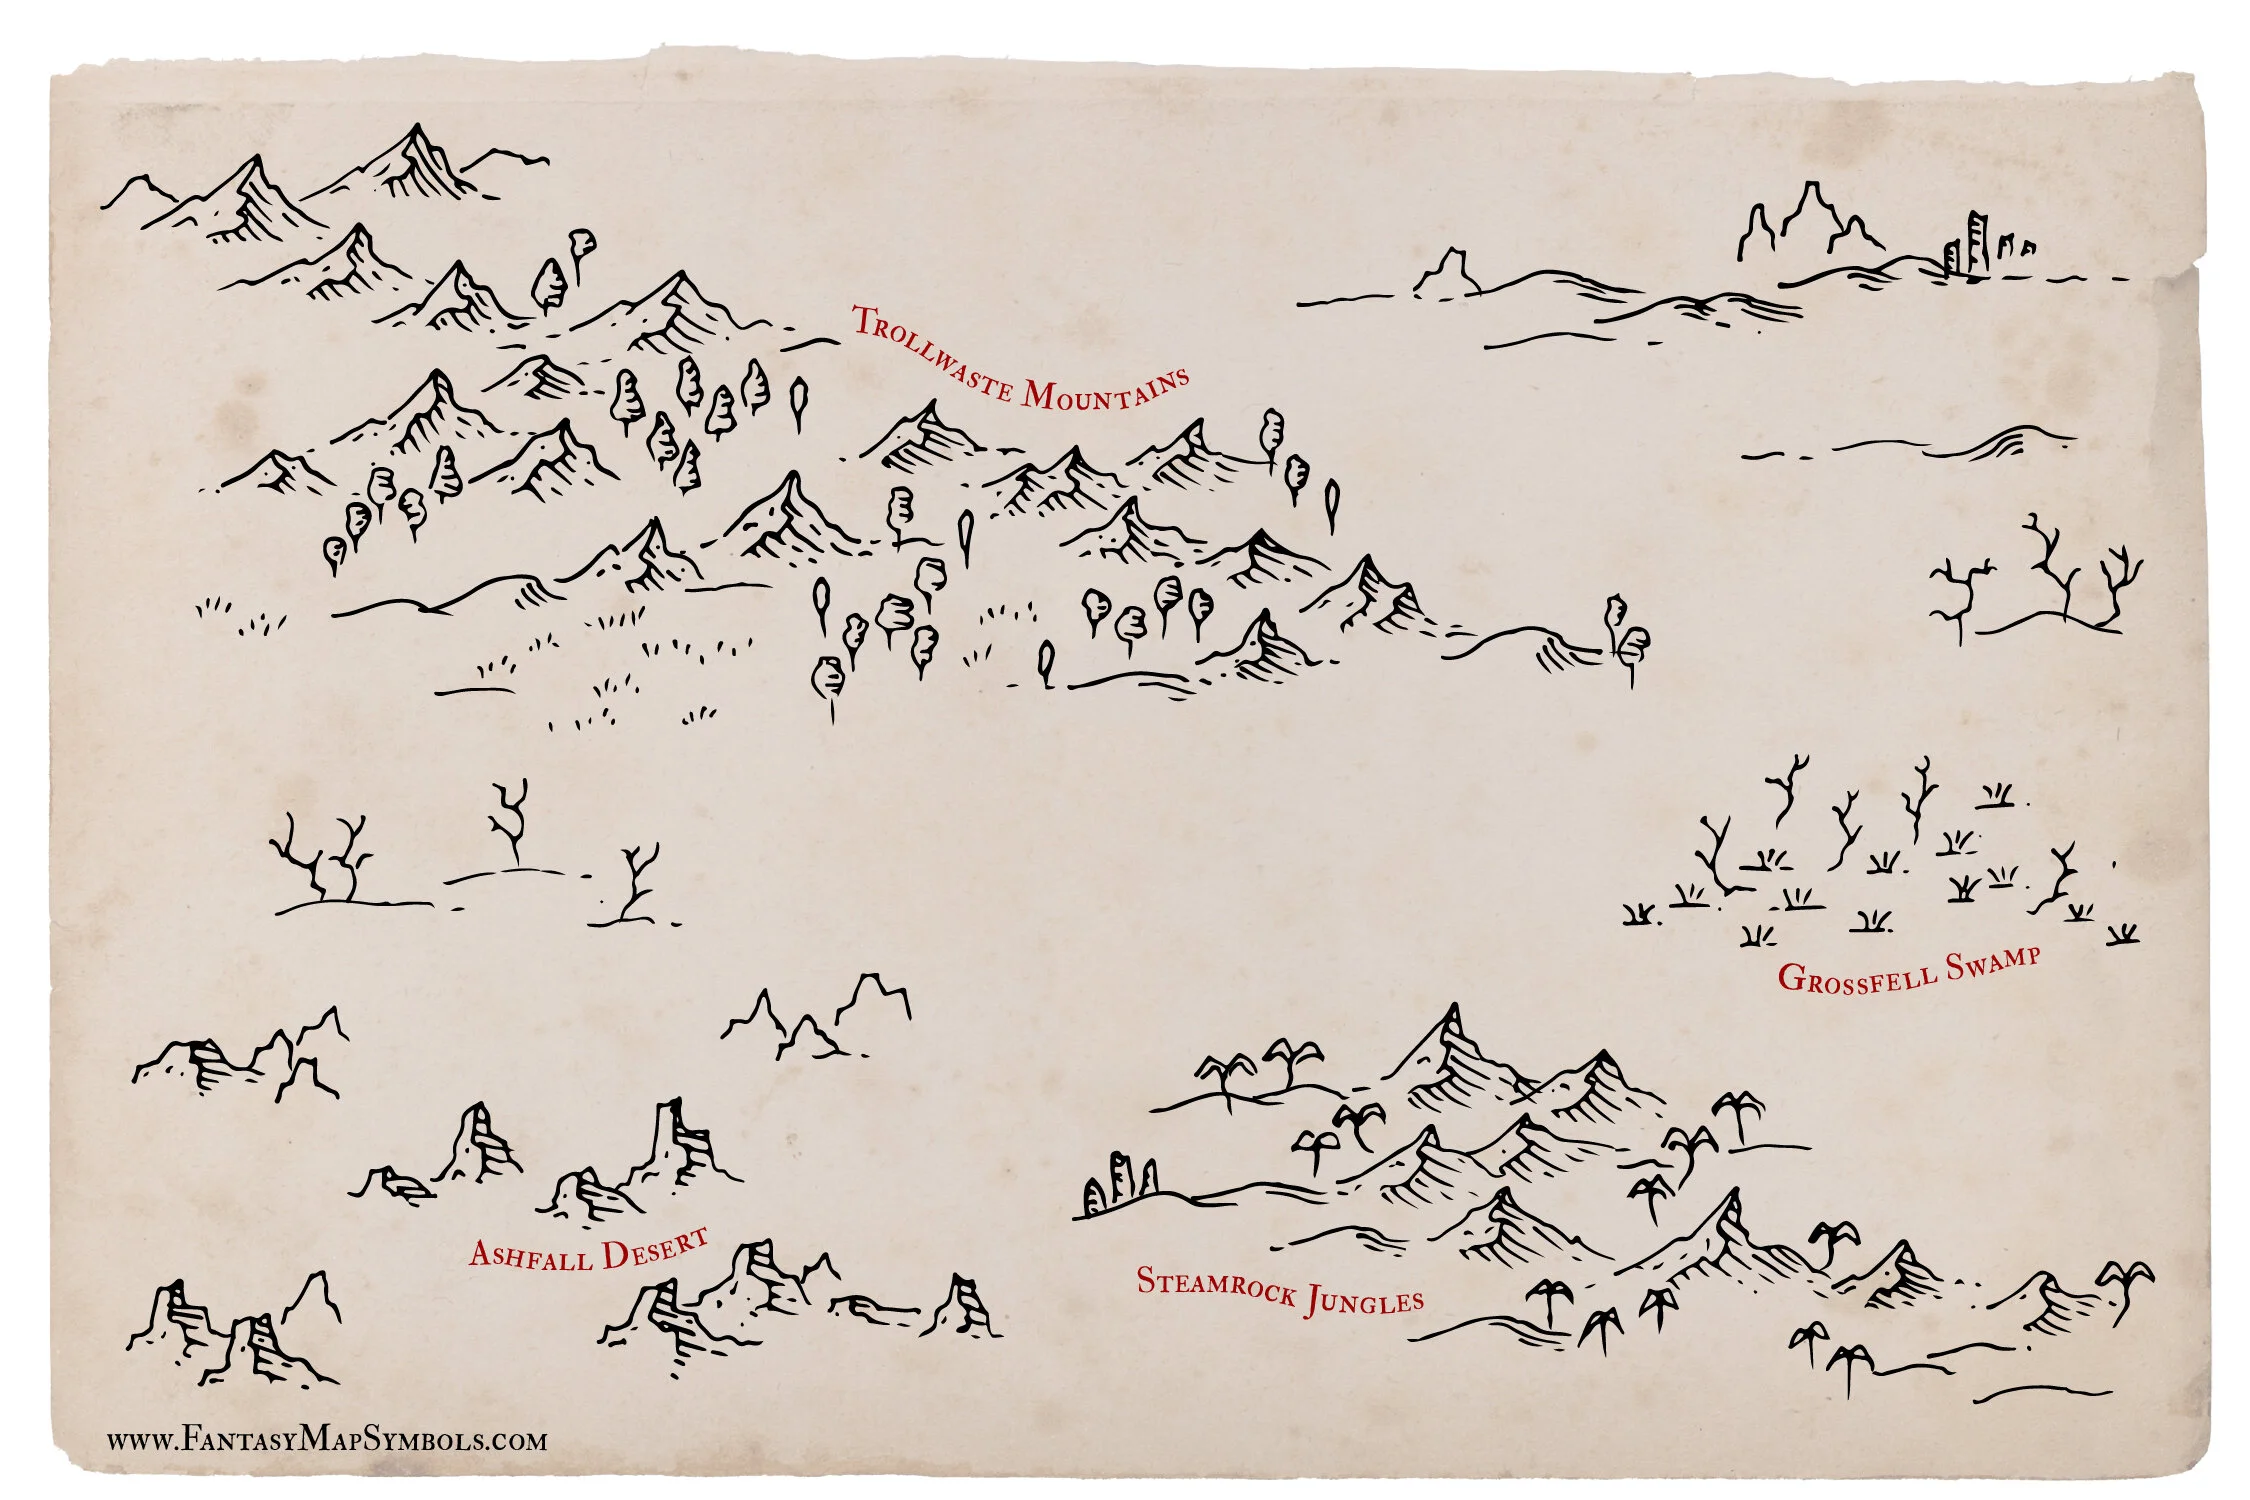 Trollwaste Mountains
Grossfell Swamp
Ashfall Desert
Steamrock Jungles
www.FantasyMapSymbols.com